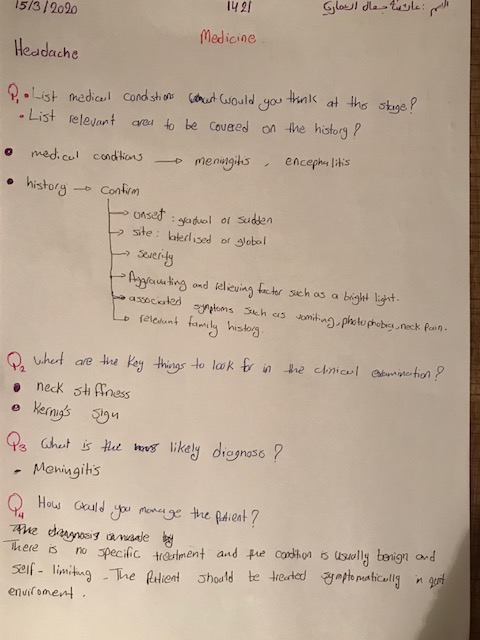 15/3/2020 1421 الاسم: عائشة جمال العماري
Medicine
Headache
Q1 • List medical condistions what would you think at this stage?
• List relevant area to be covered on the history?
• medical conditions → meningitis, encephalitis
• history → Confirm
→ onset : gradual or sudden
→ site : laterlised or global
→ severity
→ Aggravating and relieving factor such as a bright light.
→ associated symptoms such as vomiting, photophobia, neck pain.
→ relevant family history.
Q2 what are the key things to look for in the clinical examination?
• neck stiffness
• Kernig's sign
Q3 What is the likely diagnose?
- Meningitis
Q4 How would you manage the patient?
There is no specific treatment and the condition is usually benign and
self-limiting - The patient should be treated symptomatically in quit
enviroment.